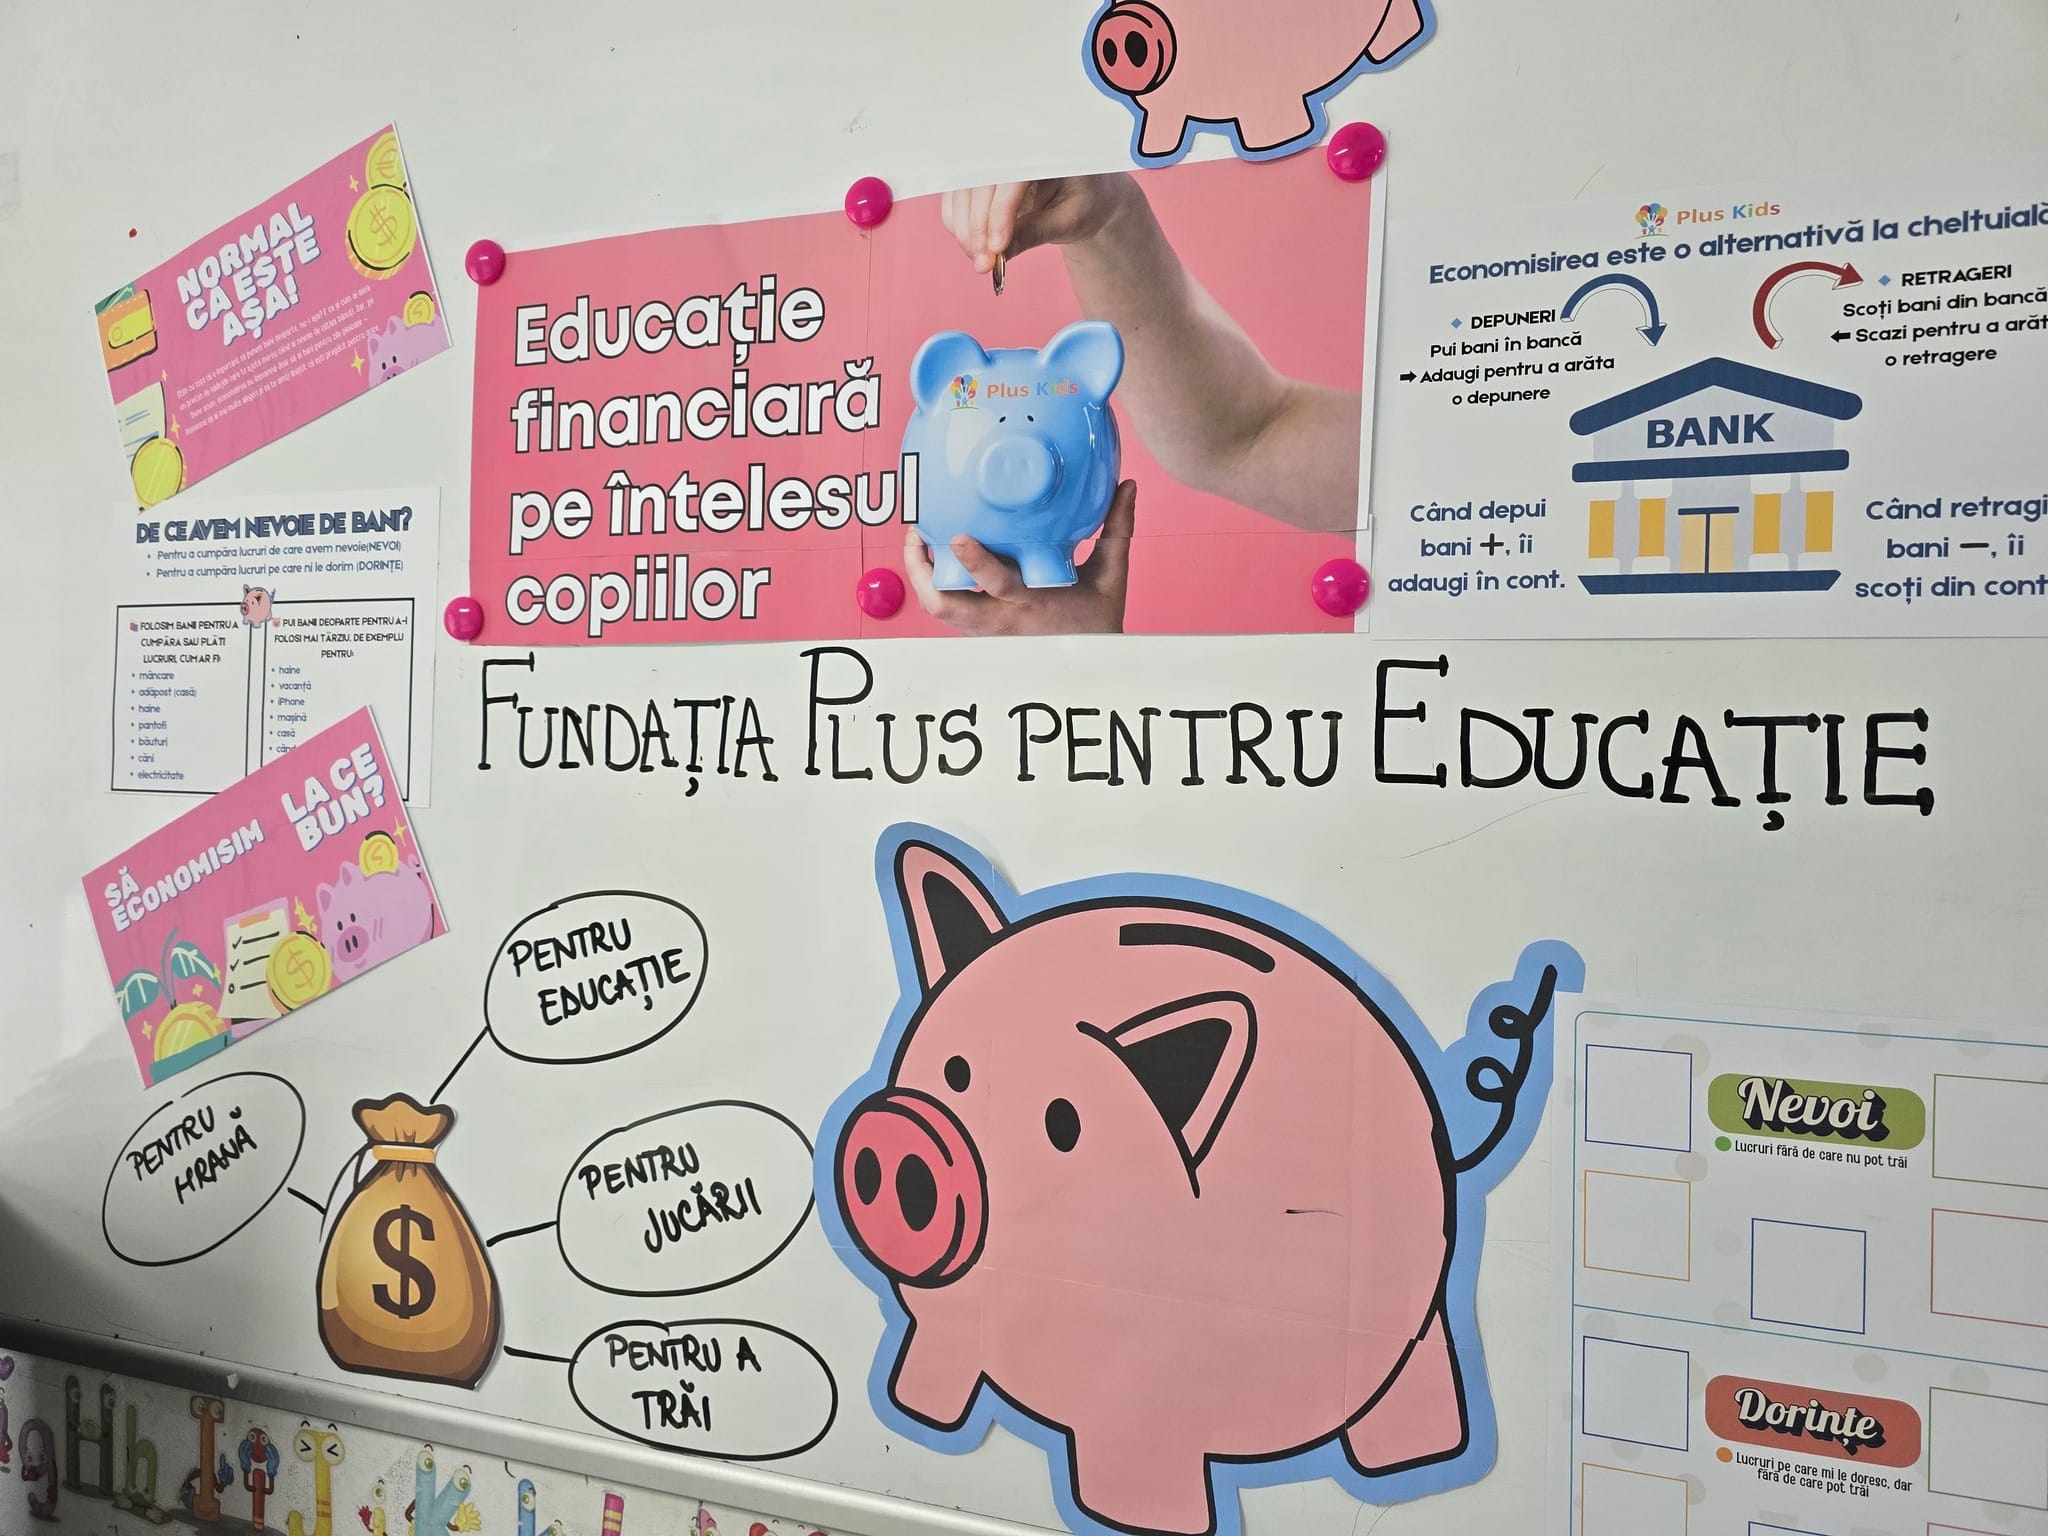 NORMAL
CA ESTE
AȘA!
DE CE AVEM NEVOIE DE BANI?
• Pentru a cumpăra lucruri de care avem nevoie(NEVOI)
• Pentru a cumpăra lucruri pe care ni le dorim (DORINȚE)
FOLOSIM BANII PENTRU A
CUMPĂRA SAU PLĂTI
LUCRURI, CUM AR FI:
• mâncare
• adăpost (casă)
• haine
• pantofi
• băuturi
• căni
• electricitate
PUI BANI DEOPARTE PENTRU A-I
FOLOSI MAI TÂRZIU, DE EXEMPLU
PENTRU:
• haine
• vacanță
• iPhone
• mașină
• casă
SĂ
ECONOMISIM
LA CE
BUN?
Educație
financiară
pe întelesul
copiilor
Plus Kids
Plus Kids
Economisirea este o alternativă la cheltuială
DEPUNERI
Pui bani în bancă
Adaugi pentru a arăta
o depunere
RETRAGERI
Scoți bani din bancă
Scazi pentru a arăt
o retragere
BANK
Când depui
bani +, îi
adaugi în cont.
Când retragi
bani —, îi
scoți din cont
FUNDAȚIA PLUS PENTRU EDUCAȚIE
PENTRU
EDUCAȚIE
PENTRU
HRANĂ
$
PENTRU
JUCĂRII
PENTRU A
TRĂI
Nevoi
Lucruri fără de care nu pot trăi
Dorințe
Lucruri pe care mi le doresc, dar
fără de care pot trăi
g H h I i J j K k